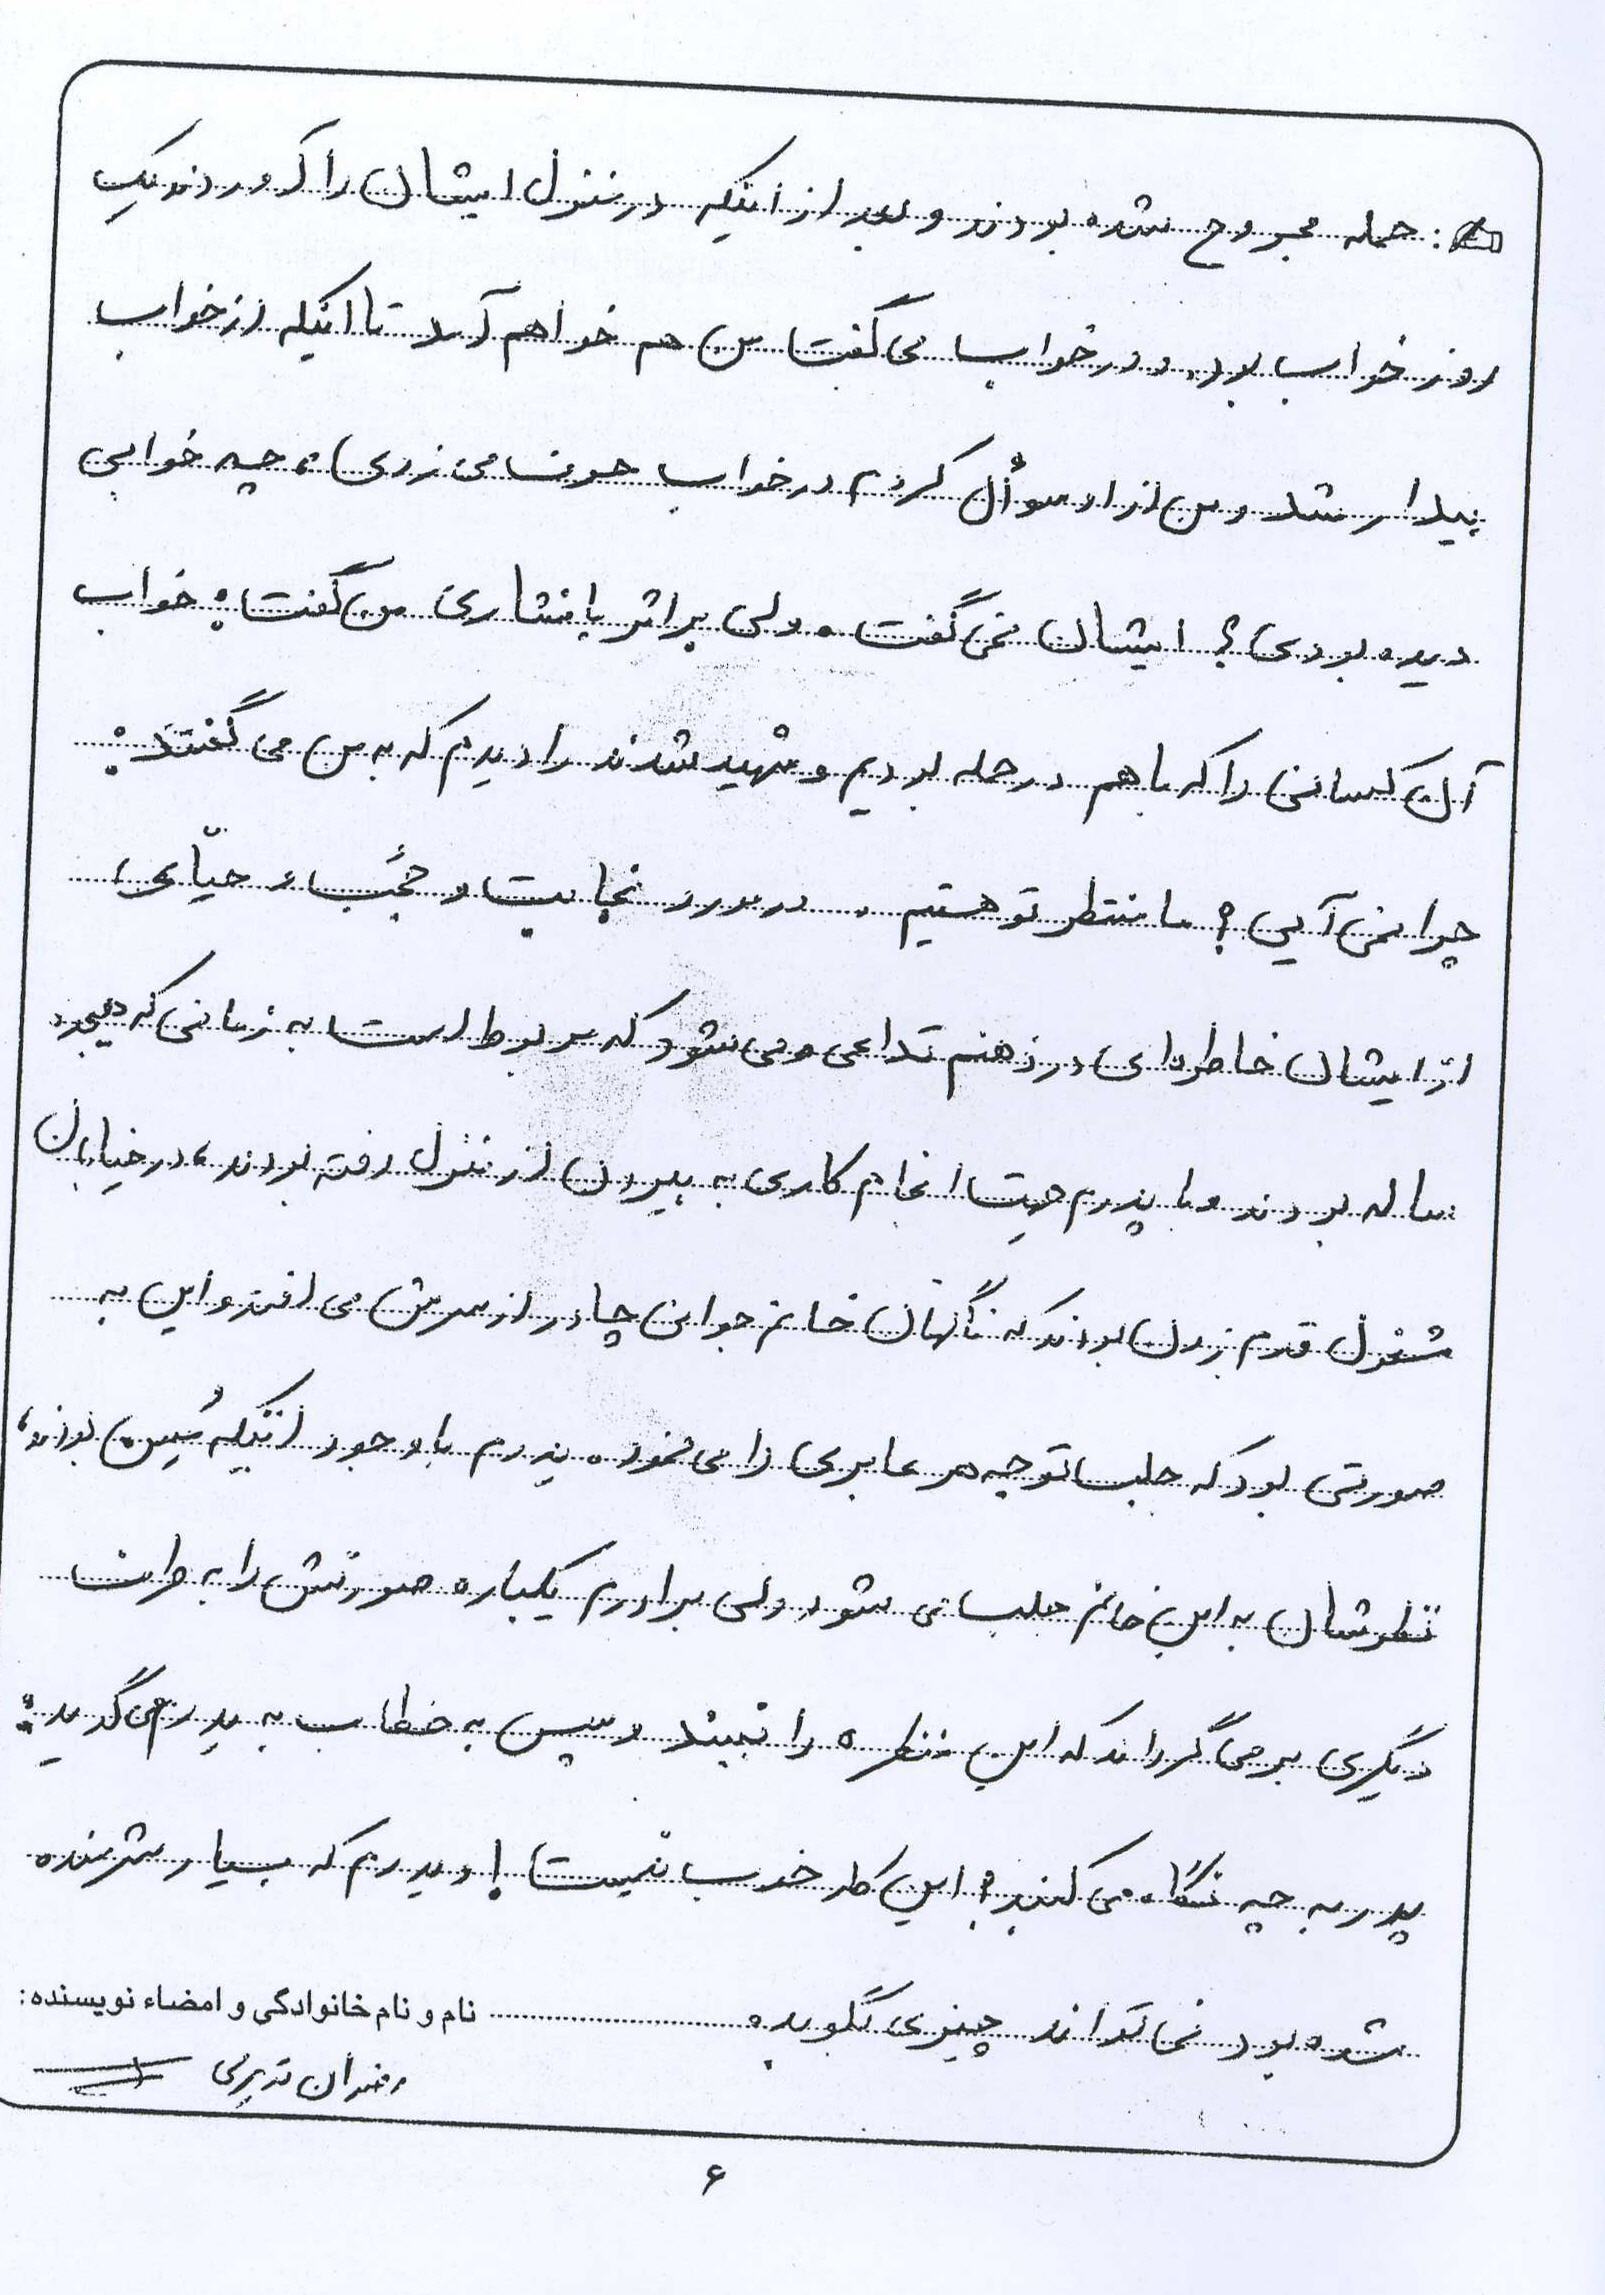 حمله مجروح شده بودند و بعد از اینکه در منزل ایشان را آوردند یک
روز خواب بود. و در خواب می گفت من هم خواهم آمد تا اینکه از خواب
بیدار شد و من از او سوأل کردم در خواب حرف می زدی، چه خوابی
دیده بودی؟ ایشان نمی گفت. ولی بر اثر پافشاری من گفت: خواب
آن کسانی را که باهم در حمله بودیم و شهید شدند را دیدم که به من می گفتند:
چرا نمی آیی؟ ما منتظر تو هستیم. در مورد نجابت و حجب و حیّای
از ایشان خاطره ای در ذهنم تداعی می شود که مربوط است به زمانی که هیجده
ساله بودند و با پدرم جهت انجام کاری به بیرون از منزل رفته بودند، در خیابان
مشغول قدم زدن بودند که ناگهان خانم جوانی چادر از سرش می افتد و این به
صورتی بود که جلب توجه هر عابری را می نمود. پدرم با وجود اینکه مُسِن بودند،
نظرشان به این خانم جلب می شود ولی برادرم یکباره صورتش را به طرف
دیگری برمی گرداند که این منظره را نبیند و سپس به خطاب به پدرم می گوید:
پدر به چه نگاه می کنید؟ این کار خوب نیست! و پدرم که بسیار شرمنده
شده بود نمی تواند چیزی بگوید.
نام و نام خانوادگی و امضاء نویسنده:
۶